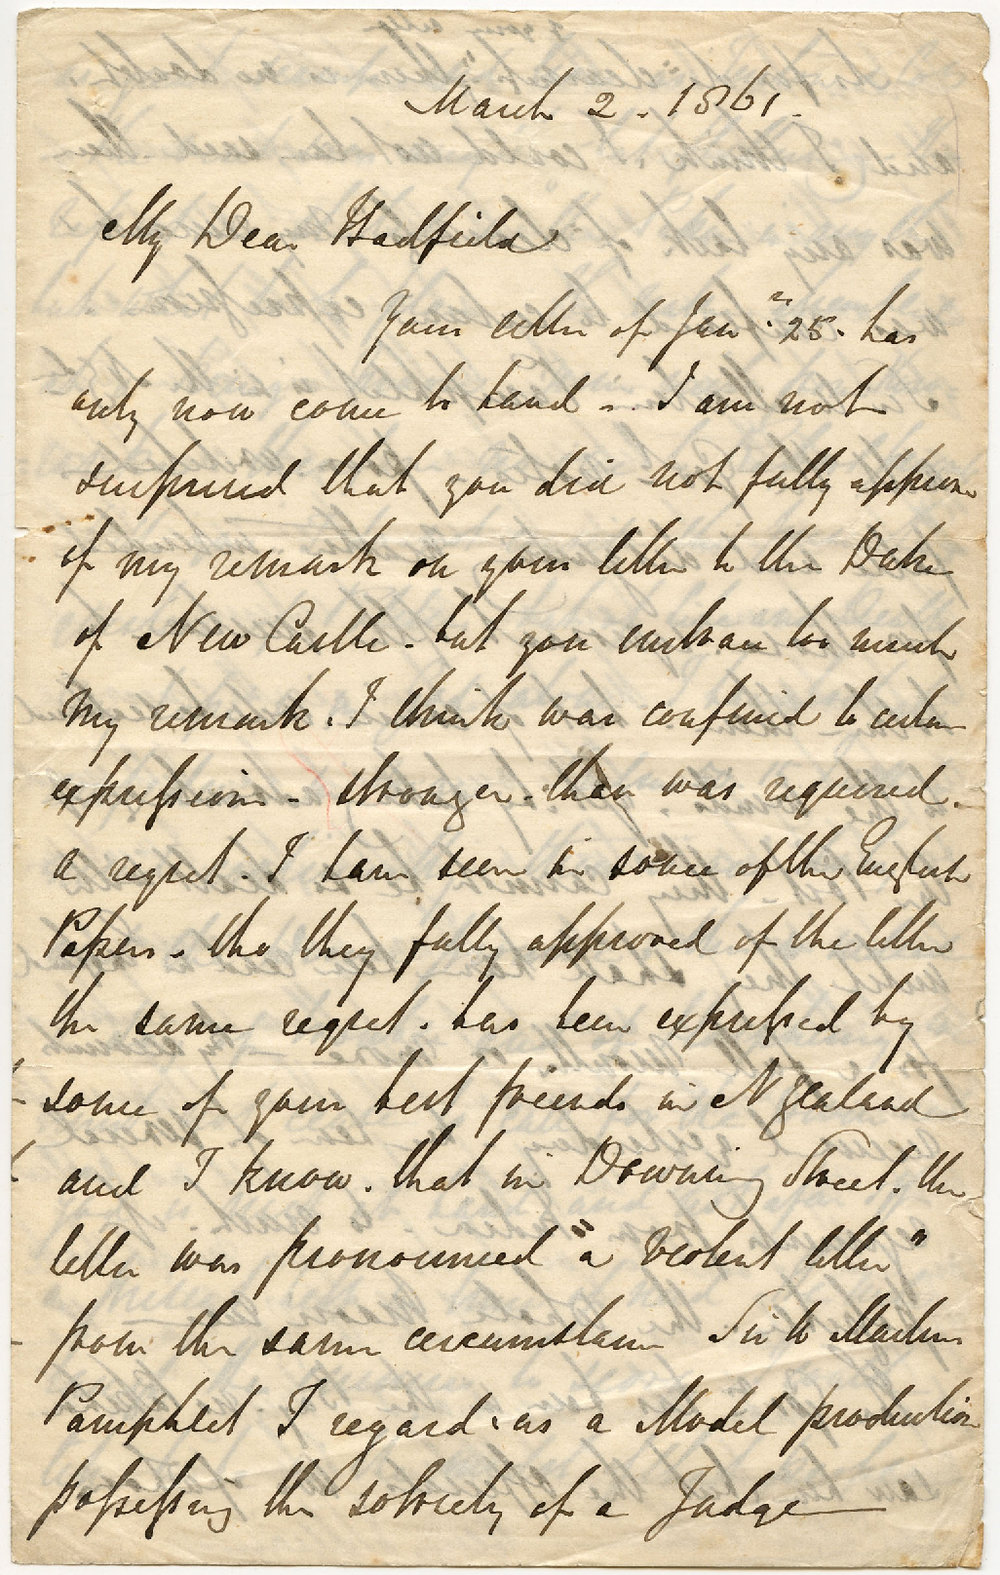 March 2. 1861.
My Dear Hadfield
Your letter of Jany. 25. has
only now come to hand -. I am not
surprised that you did not fully approve
of my remark on your letter to the Duke
of New Castle - but you embrace too much
My remark. I think was confined to certain
expressions - stronger - than was required -
a regret. I have seen in some of the English
Papers - tho they fully approved of the letter
the same regret. has been expressed by
some of your best friends in N Zealand
and I know. that in Downing Street. the
letter was pronounced "a violent letter"
from the same circumstance Sir W Martins
Pamphlet I regard as a Model production
possessing the sobriety of a Judge